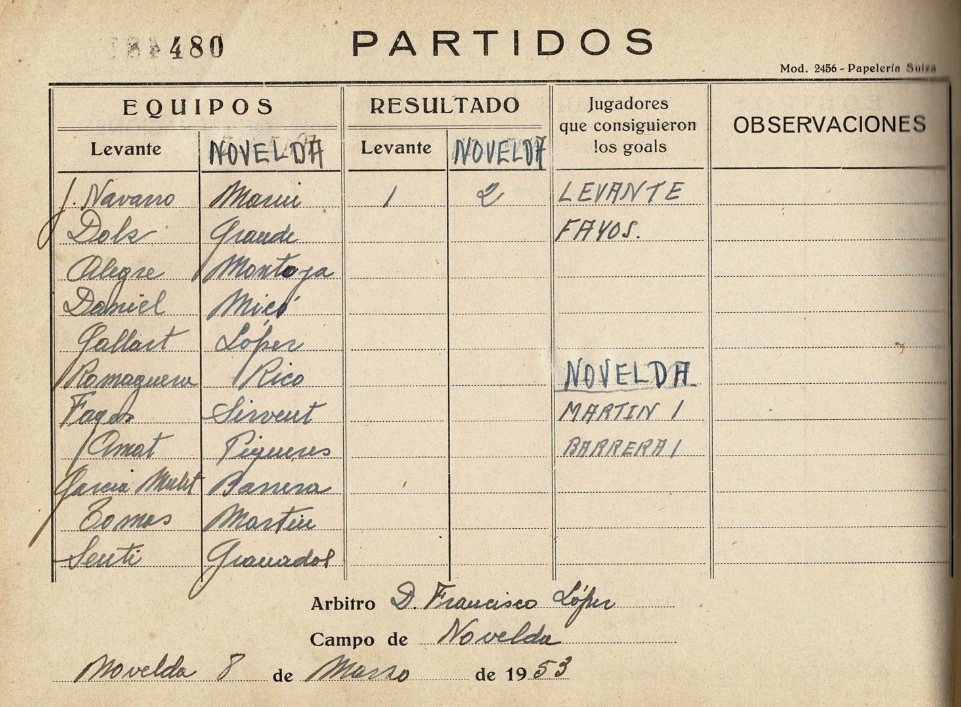 480 PARTIDOS
Mod. 2456 - Papelería Suiza
EQUIPOS RESULTADO Jugadores que consiguieron los goals OBSERVACIONES
Levante NOVELDA Levante NOVELDA
J. Navarro Marui 1 2 LEVANTE
Dols Grande FAYOS.
Alegre Montoya
Daniel Micó
Gallart López
Romaguera Rico NOVELDA
Fayos Sirvent MARTIN 1
Amat Piqueres BARRERA 1
Garcia Mulet Barrera
Tomas Martin
Senti Granados
Arbitro D. Francisco López
Campo de Novelda
Novelda 8 de Marzo de 1953